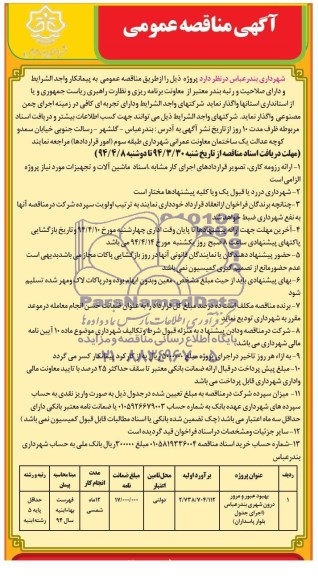 آگهی مناقصه عمومی
شهرداری بندرعباس درنظر دارد پروژه ذیل را ازطریق مناقصه عمومی به پیمانکار واجد الشرایط
و دارای صلاحیت و رتبه بندر معتبر از معاونت برنامه ریزی و نظارت راهبری ریاست جمهوری و یا
از استانداری استانها واگذار نماید. شرکتهای واجد الشرایط ودارای تجربه ای کافی در زمینه اجرای چمن
مصنوعی واگذار نماید. شرکتهای واجد الشرایط ذیل می توانند جهت کسب اطلاعات بیشتر و دریافت اسناد
مربوطه ظرف مدت ۱۰ روز از تاریخ نشر آگهی به آدرس : بندرعباس - گلشهر - رسالت جنوبی خیابان سعدو
کوچه عدالت یک ساختمان معاونت عمرانی شهرداری طبقه سوم (امور قراردادها) مراجعه نمایند
(مهلت دریافت اسناد مناقصه از تاریخ شنبه ۹۴/۳/۳۰ تا دوشنبه ۹۴/۴/۸)
۱- ارائه رزومه کاری، تصویر قراردادهای اجرای کار مشابه .اسناد ماشین آلات و تجهیزات مورد نیاز پروژه
الزامی است
۲- شهرداری در رد یا قبول یک و یا کلیه پیشنهادها مختار است
۳- چنانچه برندگان فراخوان از انعقاد قرارداد خودداری نمایند به ترتیب اولویت سپرده شرکت در مناقصه آنها
به نفع شهرداری ضبط خواهد شد
۴- آخرین مهلت جهت ارائه پیشنهادها تا پایان وقت اداری چهارشنبه مورخ ۹۴/۴/۱۰ و تاریخ بازگشایی
پاکتهای پیشنهادی ساعت ۸ صبح روز یکشنبه مورخ ۹۴/۴/۱۴ می باشد
۵- حضور پیشنهاد دهندگان یا نمایندگان قانونی آنها در روز بازگشایی پاکات مجاز می باشد بدیهی است
عدم حضور مانع از تصمیم گیری کمیسیون نمی باشد
۶- بهای پیشنهادی باید از حیث مبلغ مشخص، معین وبدون ابهام بوده و در پاکات لاک ومهر شده تسلیم
شود
۷- برنده مناقصه مکلف است ده درصد مبلغ کل قرارداد را به عنوان ضمانت حسن انجام معامله در موعد
مقرر به شهرداری تودیع نماید
۸- شرکت در مناقصه ودادن پیشنهاد به منزله قبول شرط و تکالیف شهرداری موضوع ماده ۱۰ آیین نامه
مالی شهرداری می باشد
۹- به ازاء هر روز تاخیر در اجرای پروژه مبلغ ریال از کارکرد پیمانکار کسر می گردد
۱۰- مبلغ پیش پرداخت در قبال ارائه ضمانت بانکی معتبر تا سقف حداکثر ۲۵ درصد با تایید معاونت مالی
واداری شهرداری قابل پرداخت می باشد
۱۱- میزان سپرده شرکت در مناقصه به مبلغ تعیین شده در جدول ذیل به صورت واریز نقدی به حساب
سپرده های شهرداری عهده بانک به شماره حساب ۰۱۰۵۹۲۶۶۷۹۰۰۳ یا ضمانت نامه معتبر بانکی دارای
حداقل سه ماه اعتبار می باشد (چک تضمین شده بانکی یا اسناد ومطالبات قابل قبول کمیسیون نمی باشد)
۱۲- سایر جزئیات ومشخصات در اسناد فراخوان قید گردیده است
۱۳- شماره حساب خرید اسناد مناقصه ۰۱۰۵۸۱۹۳۳۶۰۰۴ مبلغ ۳۰۰۰۰۰ ریال بانک ملی به حساب شهرداری
بندرعباس
ردیف عنوان پروژه برآورد اولیه محل تامین اعتبار مبلغ ضمانت نامه مدت انجام کار مبنا محاسبه پیمان رتبه و رشته
۱ بهبود عبور و مرور درون شهری بندرعباس (اجرای جدول بلوار پاسداران) ۲/۷۳۸/۷۰۴/۱۱۴ دولتی ۱۷/۰۰۰/۰۰۰ ۱۲ماه شمسی فهرست بها،ابنیه سال ۹۴ حداقل پایه ۵ رشته:ابنیه